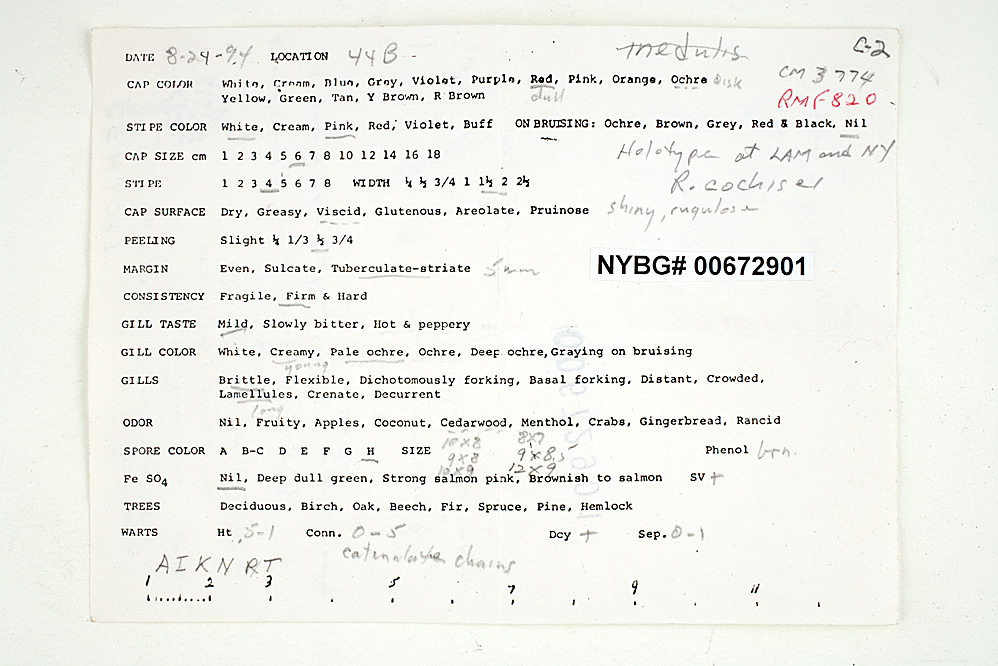 DATE 8-24-94 LOCATION 44B medulis C-2
CAP COLOR White, Cream, Blue, Grey, Violet, Purple, Red, Pink, Orange, Ochre disk CM 3774
Yellow, Green, Tan, Y Brown, R Brown dull RMF 820
STIPE COLOR White, Cream, Pink, Red, Violet, Buff ON BRUISING: Ochre, Brown, Grey, Red & Black, Nil
CAP SIZE cm 1 2 3 4 5 6 7 8 10 12 14 16 18 Holotype at LAM and NY
STIPE 1 2 3 4 5 6 7 8 WIDTH ¼ ½ 3/4 1 1½ 2 2½ R. cochisei
CAP SURFACE Dry, Greasy, Viscid, Glutenous, Areolate, Pruinose shiny, rugulose
PEELING Slight ¼ 1/3 ½ 3/4
MARGIN Even, Sulcate, Tuberculate-striate 5 mm
NYBG# 00672901
CONSISTENCY Fragile, Firm & Hard
GILL TASTE Mild, Slowly bitter, Hot & peppery
GILL COLOR White, Creamy, Pale ochre, Ochre, Deep ochre, Graying on bruising
young
GILLS Brittle, Flexible, Dichotomously forking, Basal forking, Distant, Crowded,
Lamellules, Crenate, Decurrent
long
ODOR Nil, Fruity, Apples, Coconut, Cedarwood, Menthol, Crabs, Gingerbread, Rancid
10x8 8x7
SPORE COLOR A B-C D E F G H SIZE 9x8 9x8.5 Phenol brn.
10x9 12x9
Fe SO4 Nil, Deep dull green, Strong salmon pink, Brownish to salmon SV +
TREES Deciduous, Birch, Oak, Beech, Fir, Spruce, Pine, Hemlock
WARTS Ht .5-1 Conn. 0-5 Dcy + Sep. 0-1
catenulate chains
AIKNRT
1 2 3 5 7 9 11